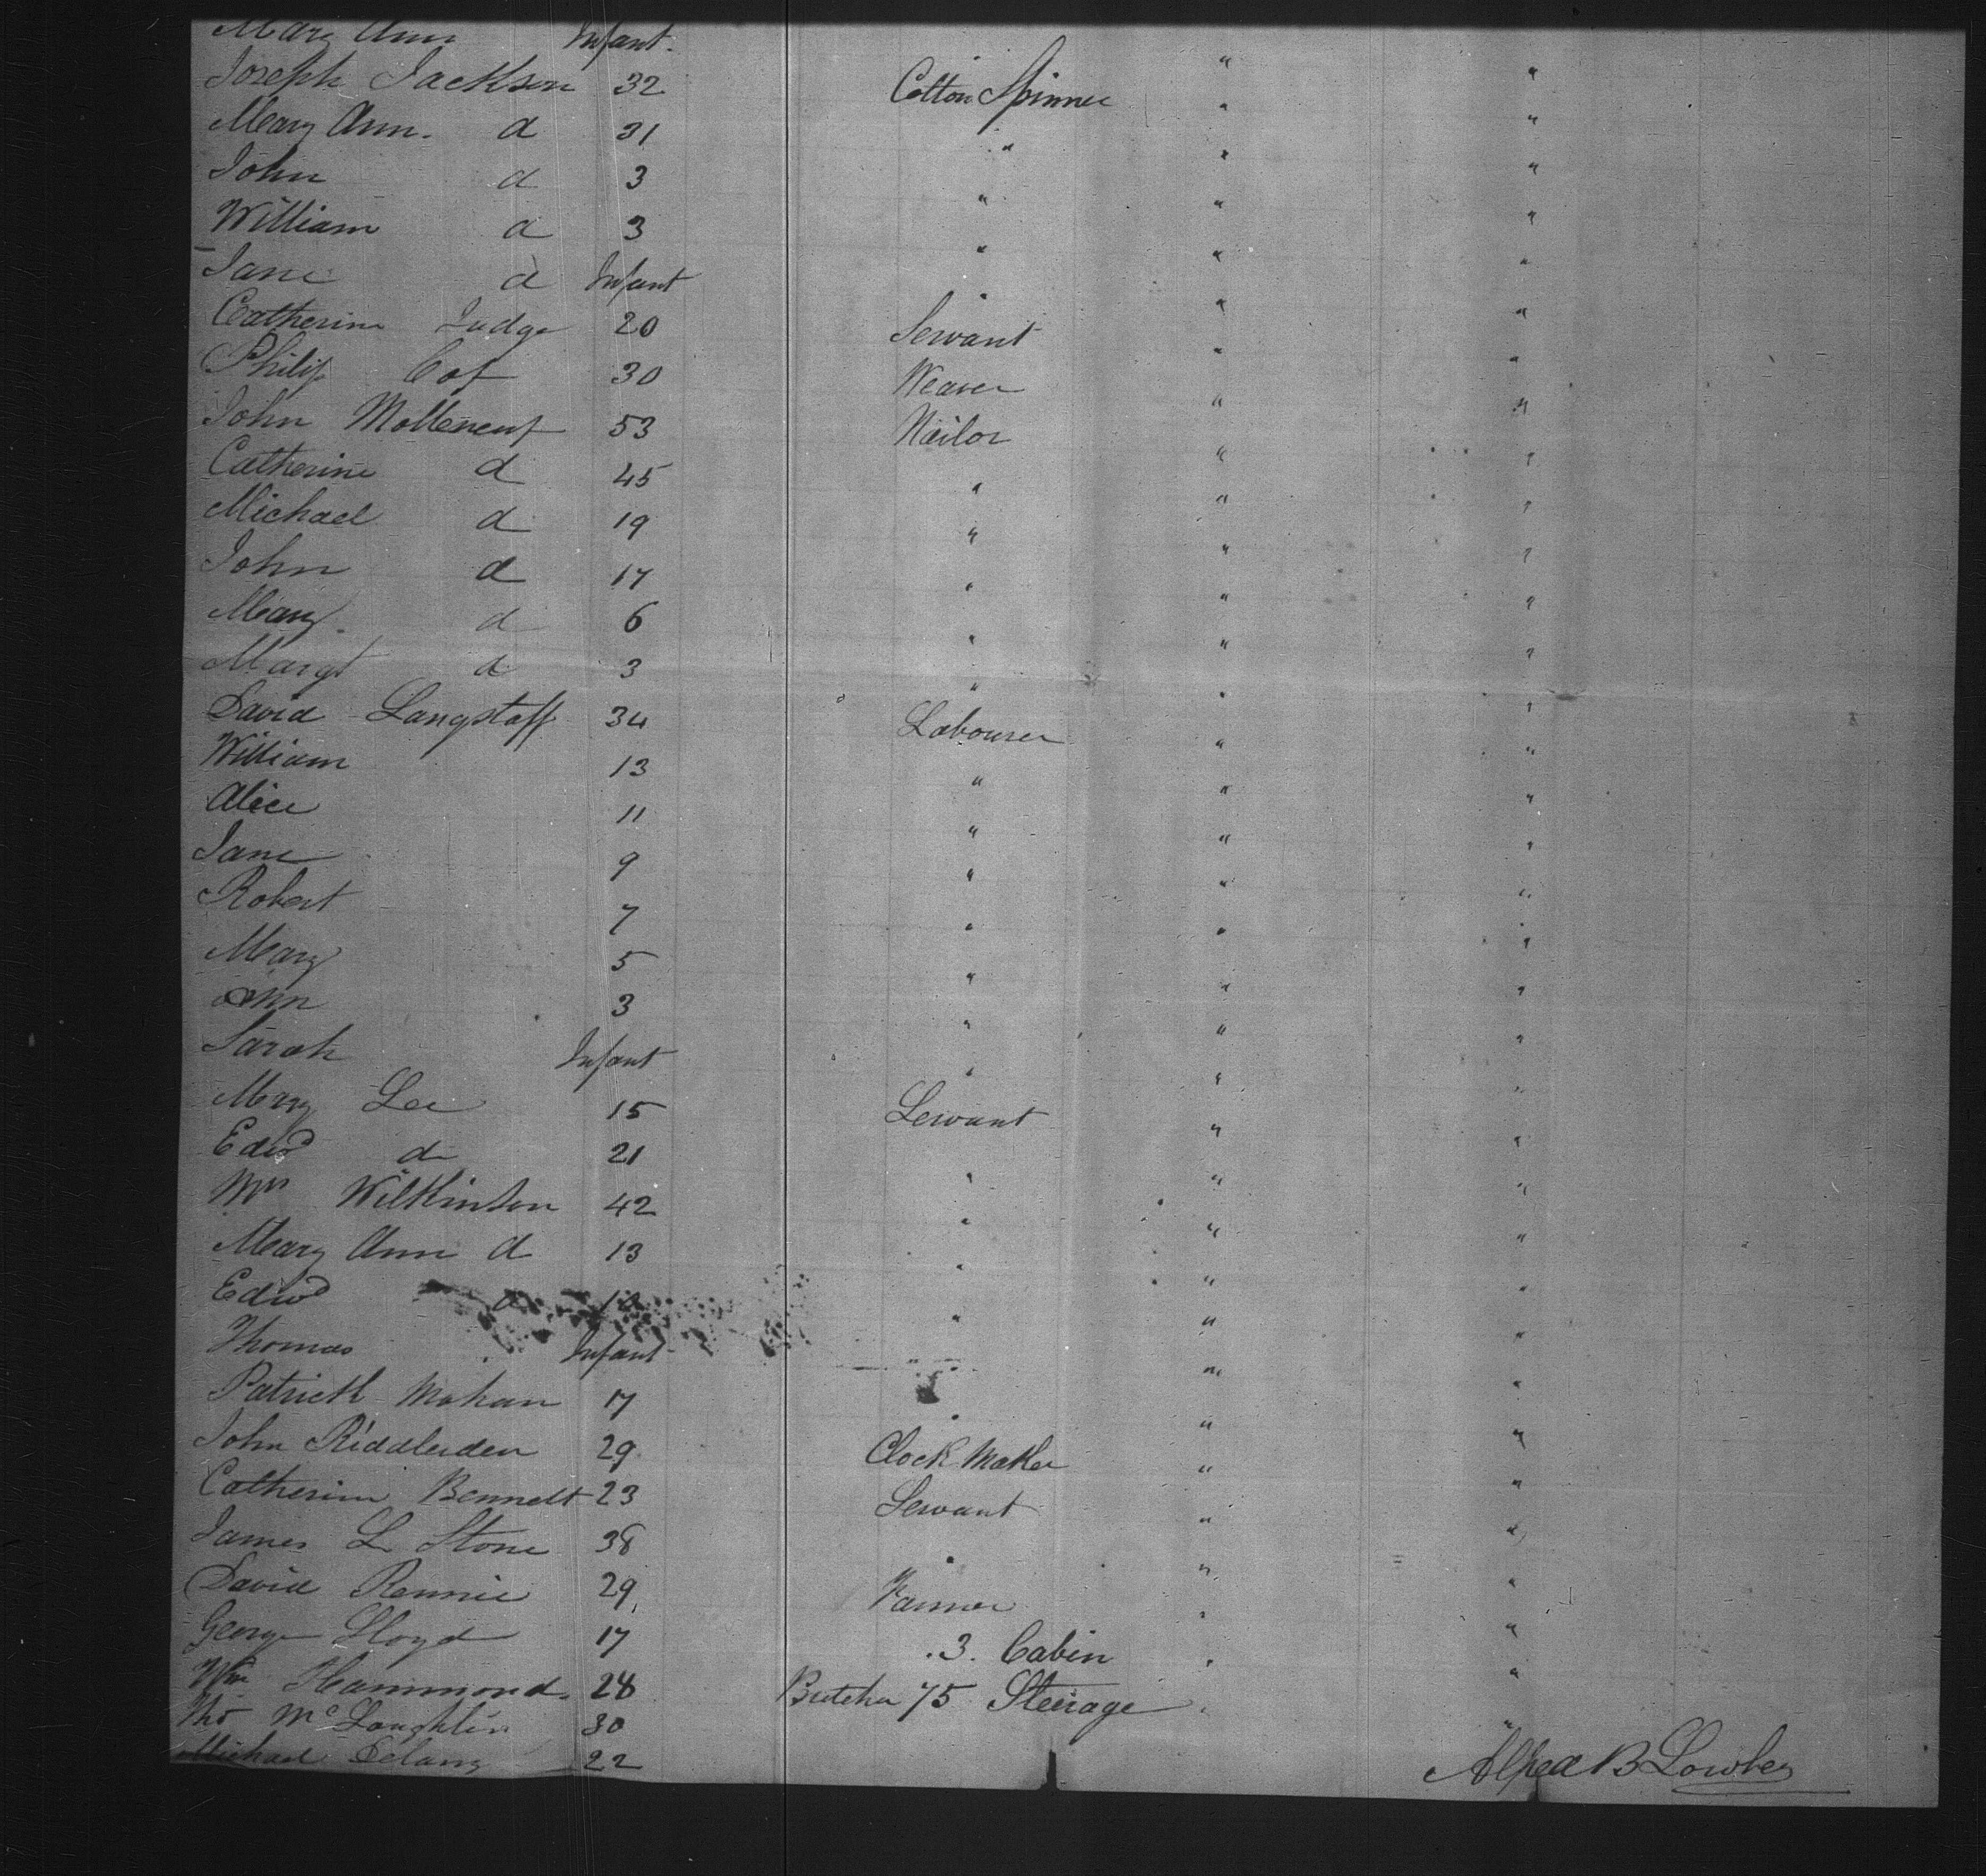 Mary Ann Infant.
Joseph Jackson 32 Cotton Spinner " "
Mary Ann. d 31 " " "
John d 3 " " "
William d 3 " " "
Jane d Infant " " "
Catherine Judge 20 Servant " "
Philip 30 Weaver " "
John 53 Nailor " "
Catherine d 45 " " "
Michael d 19 " " "
John d 17 " " "
Mary d 6 " " "
Margt d 3 " " "
David Langstaff 34 Labourer " "
William 13 " " "
Alice 11 " " "
Jane 9 " " "
Robert 7 " " "
Mary 5 " " "
Ann 3 " " "
Sarah Infant " " "
Mary Lee 15 Servant " "
Edwd d 21 " " "
Mrs Wilkinson 42 " " "
Mary Ann d 13 " " "
Edwd d " " "
Thomas Infant " " "
Patrick Mohan 17 " " "
John Riddlesden 29 Clock Maker " "
Catherine Bennett 23 Servant " "
James L Stone 38 " " "
David Rennie 29 Farmer " "
George Lloyd 17 " "
3. Cabin
Wm Hammond. 28 Butcher " "
75 Steerage
Thos McLaughlin 30
Michael Delany 22
Alfred B Lowber